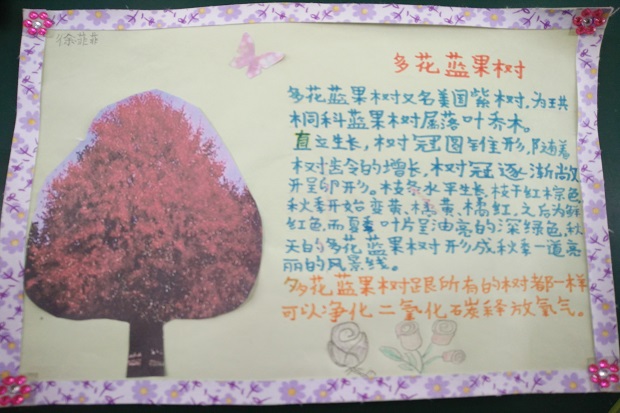 徐范菲
多花蓝果树
多花蓝果树又名美国紫树,为珙
桐科蓝果树属落叶乔木。
直立生长,树冠圆锥形,随着
树木令的增长,树冠逐渐敞
开呈卵形。枝条水平生长,枝干红棕色
秋季开始变黄、橘黄、橘红,之后为鲜
红色,而夏季叶片呈油亮的深绿色,秋
天的多花蓝果树形成秋季一道亮
丽的风景线。
多花蓝果树跟所有的树都一样
可以净化二氧化石炭释放氧气。